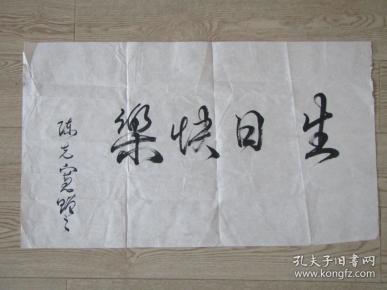 生日快樂
陈克寛赠之
孔夫子旧书网
www.kongfz.com